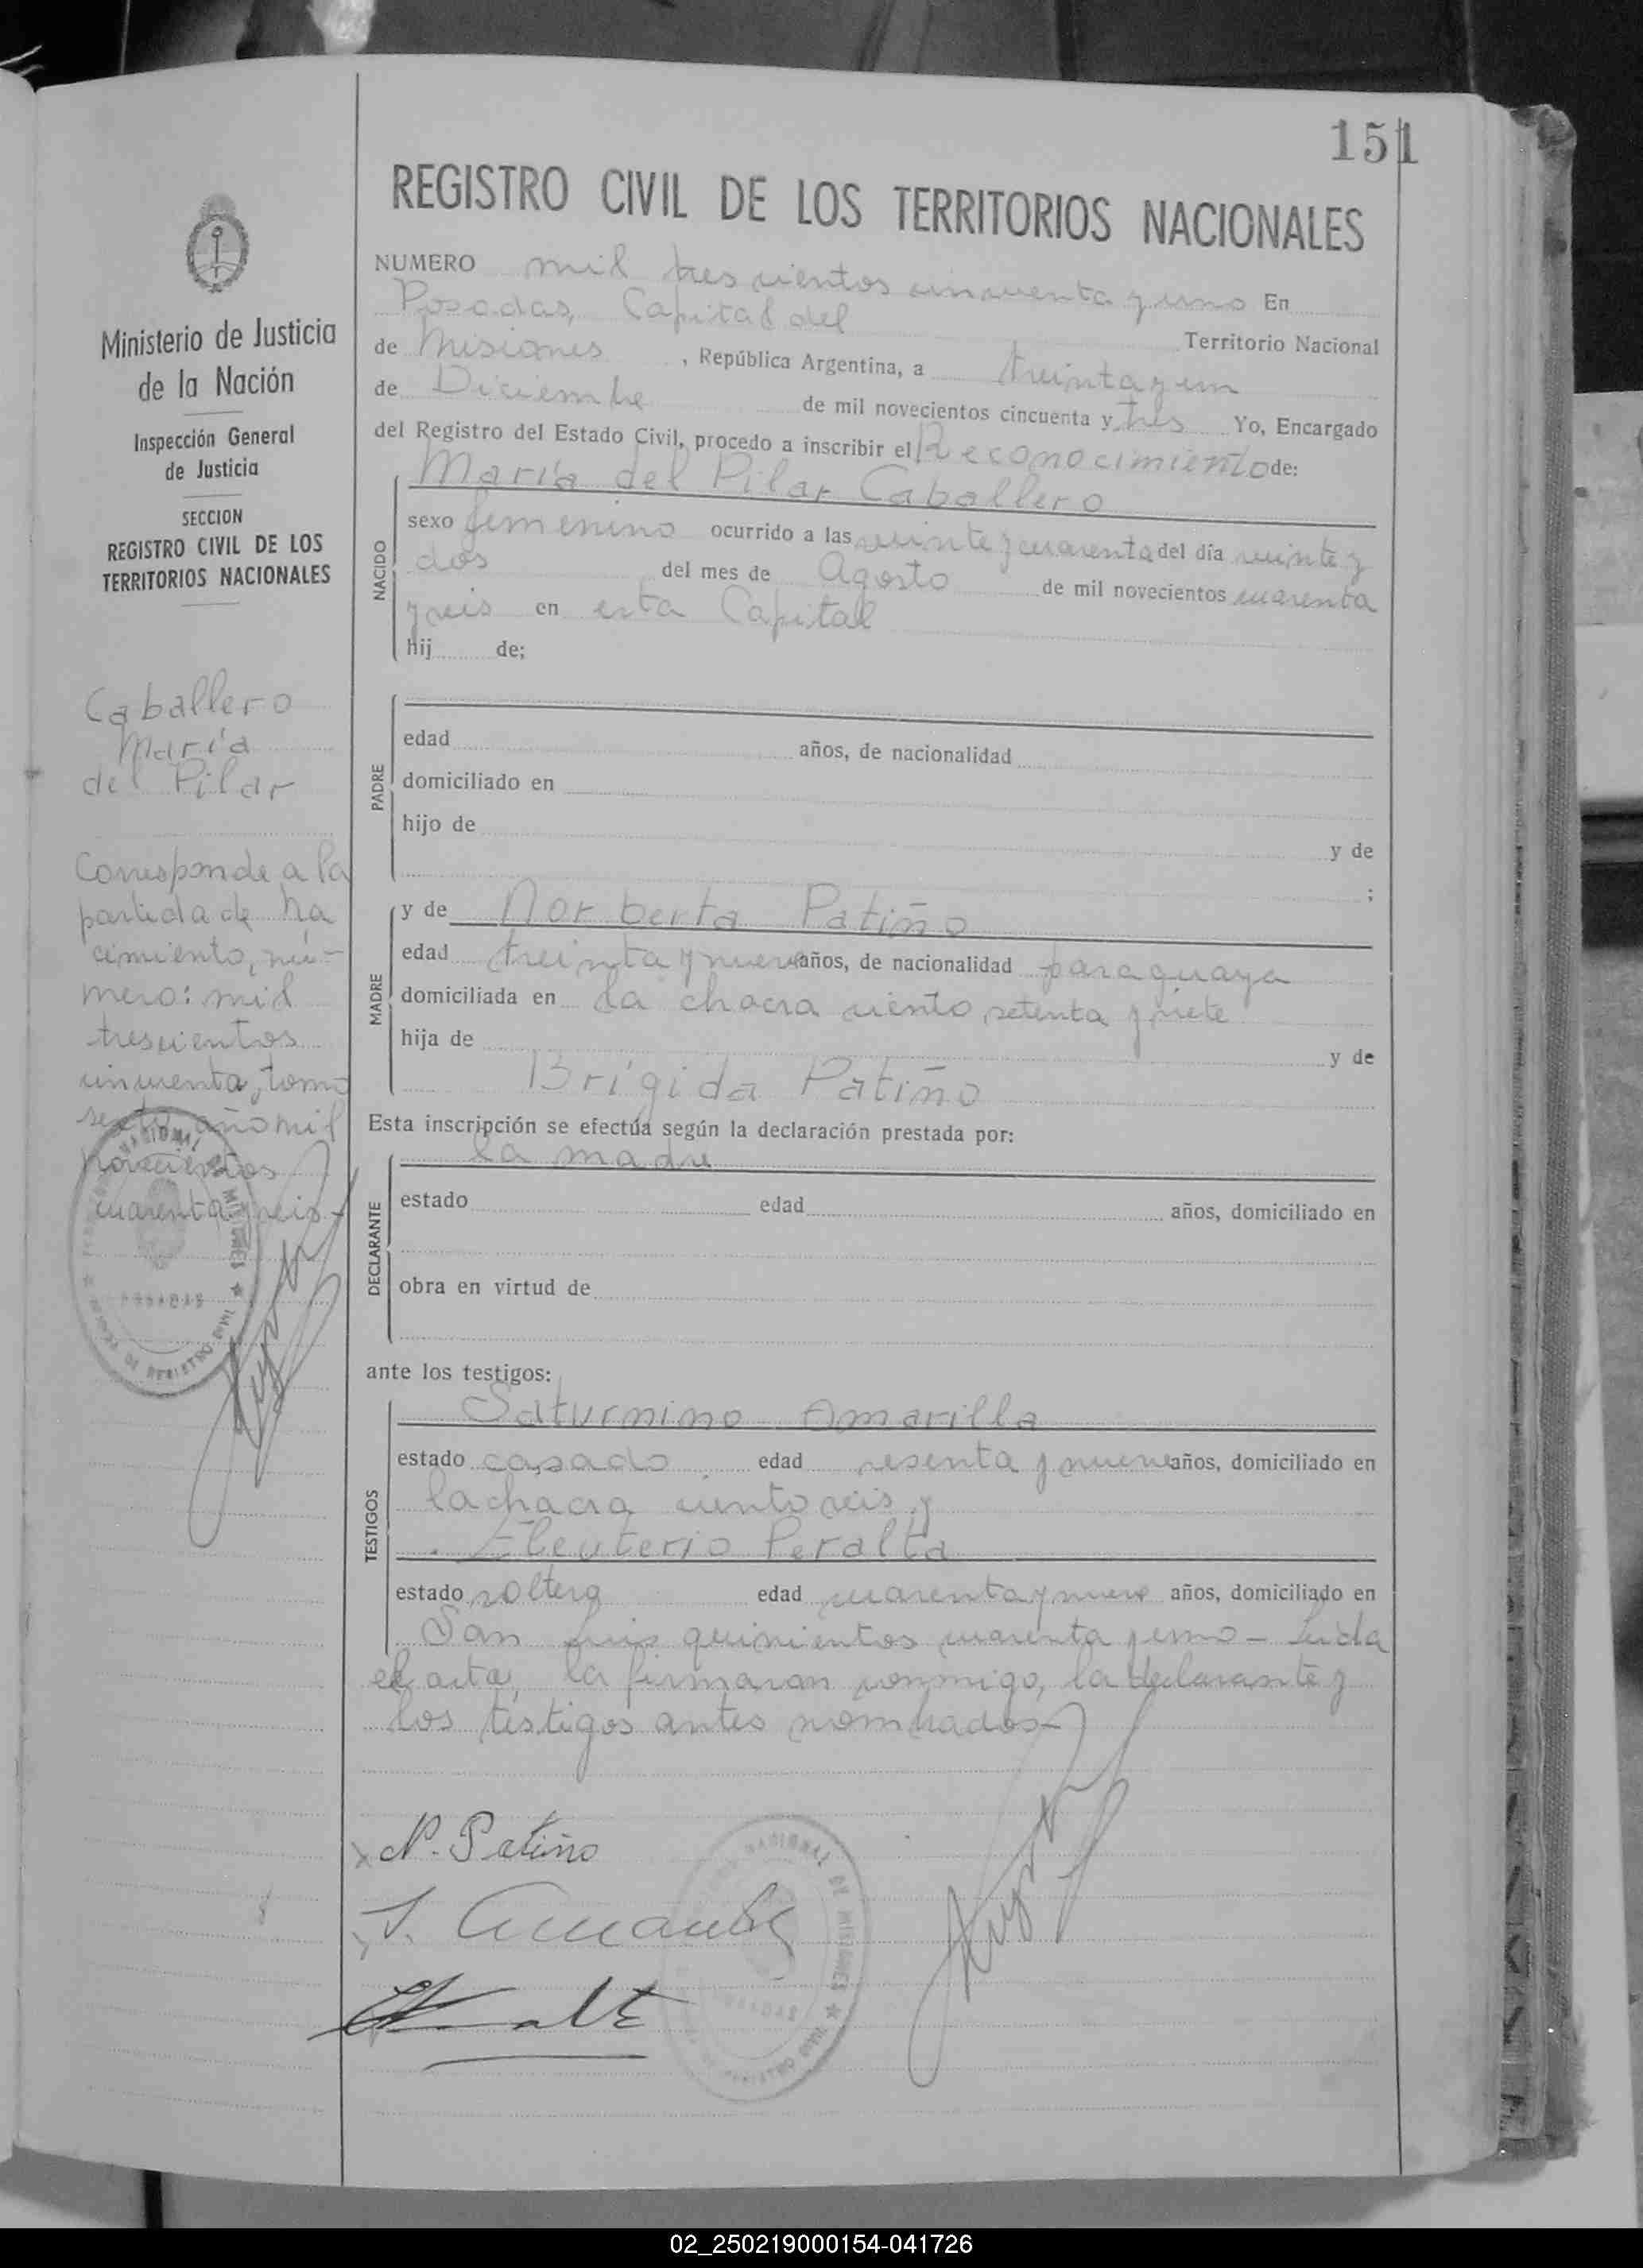 151
REGISTRO CIVIL DE LOS TERRITORIOS NACIONALES
NUMERO mil trescientos cincuenta y uno En
Posadas, Capital del Territorio Nacional
de Misiones, República Argentina, a treinta y un
de Diciembre de mil novecientos cincuenta y tres Yo, Encargado
del Registro del Estado Civil, procedo a inscribir el Reconocimiento de:
María del Pilar Caballero
NACIDO
sexo femenino ocurrido a las veinte y cuarenta del día veinte y
dos del mes de Agosto de mil novecientos cuarenta
y seis en esta Capital
hij de;
PADRE
edad años, de nacionalidad
domiciliado en
hijo de
y de
;
MADRE
y de Norberta Patiño
edad treinta y nueve años, de nacionalidad paraguaya
domiciliada en la chacra ciento setenta y siete
hija de y de
Brígida Patiño
Esta inscripción se efectúa según la declaración prestada por:
la madre
DECLARANTE
estado edad años, domiciliado en
obra en virtud de
ante los testigos:
TESTIGOS
Saturnino Amarilla
estado casado edad sesenta y nueve años, domiciliado en
la chacra ciento seis y
Eleuterio Peralta
estado soltero edad cuarenta y nueve años, domiciliado en
San Luis quinientos cuarenta y uno - Leida
el acta, la firmaron conmigo, la declarante y
los testigos antes nombrados-
N. Patiño
S. Amarilla
Ministerio de Justicia
de la Nación
Inspección General
de Justicia
SECCION
REGISTRO CIVIL DE LOS
TERRITORIOS NACIONALES
Caballero
María
del Pilar
Corresponde a la
partida de na
cimiento, nú-
mero: mil
trescientos
cincuenta, tomo
sexto año mil
novecientos
cuarenta y seis-
POSADAS
NACIONAL DE MISIONES
02_250219000154-041726